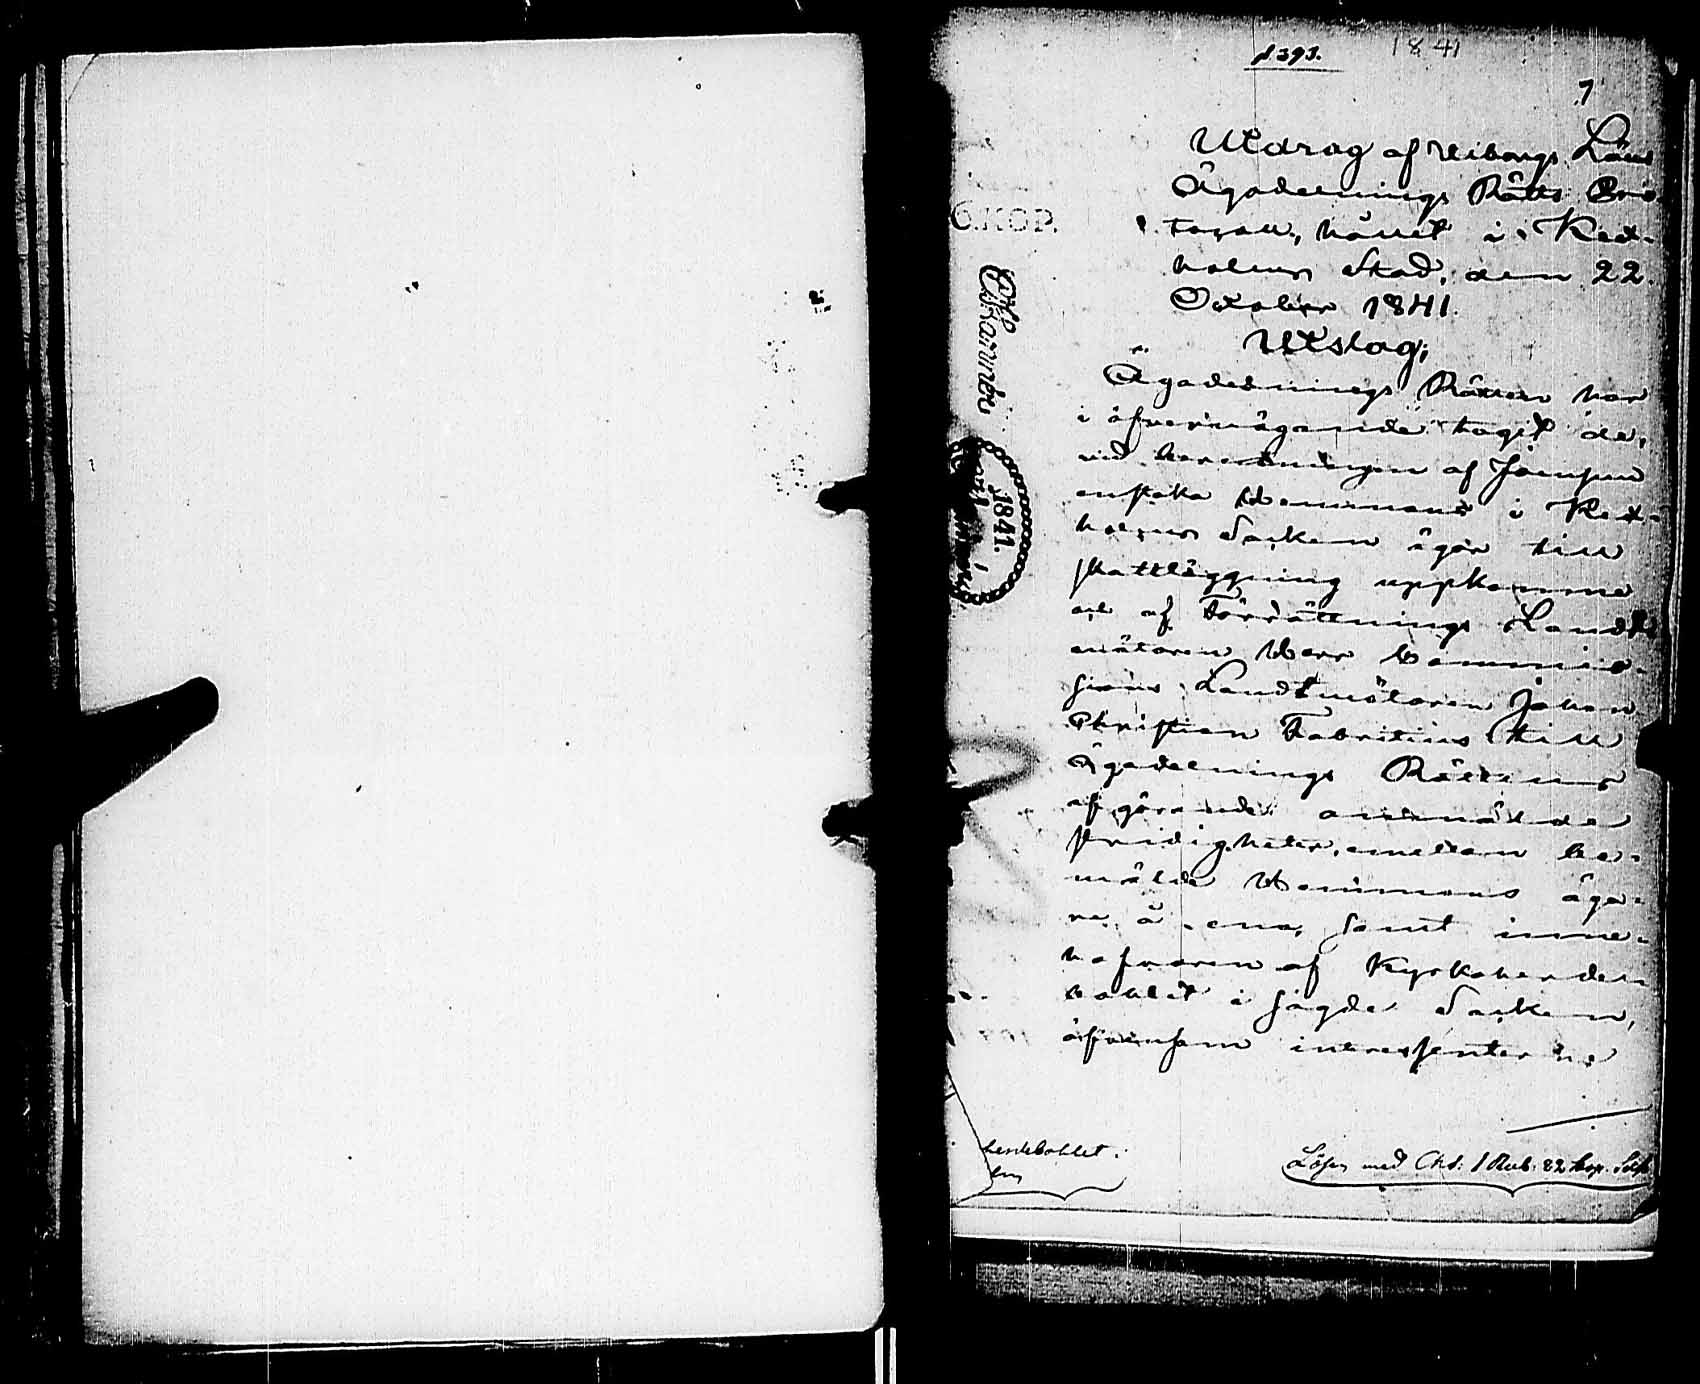 1393.
1841
7
Utdrag af Wiborgs Läns
Ägodelnings Rätts Pro
tocoll, hållet i Kex-
holms Stad, den 22
October 1841.
Utslag;
Ägodelnings Rätten har
i öfvervägande tagit de,
vid beredningen af Joensuu
enskilta Hemmans i Kex-
holms Socken ägor till
skattläggning uppkomne
och af Förrättnings Landt
mätaren Herr Commis-
sions Landtmätaren Johan
Christian Fabritius till
Ägodelnings Rättens
afgörande anmälde
stridigheter, emellan be-
mälde Hemmans äga-
re, å ena, samt inne-
hafvaren af Kyrkoherde
bohlet i sagde Socken,
äfvensom interessenterne
herdebohlet.
Lösen med Chs: 1 Rub. 82 kop. Silfv
6.KOP.
1841.